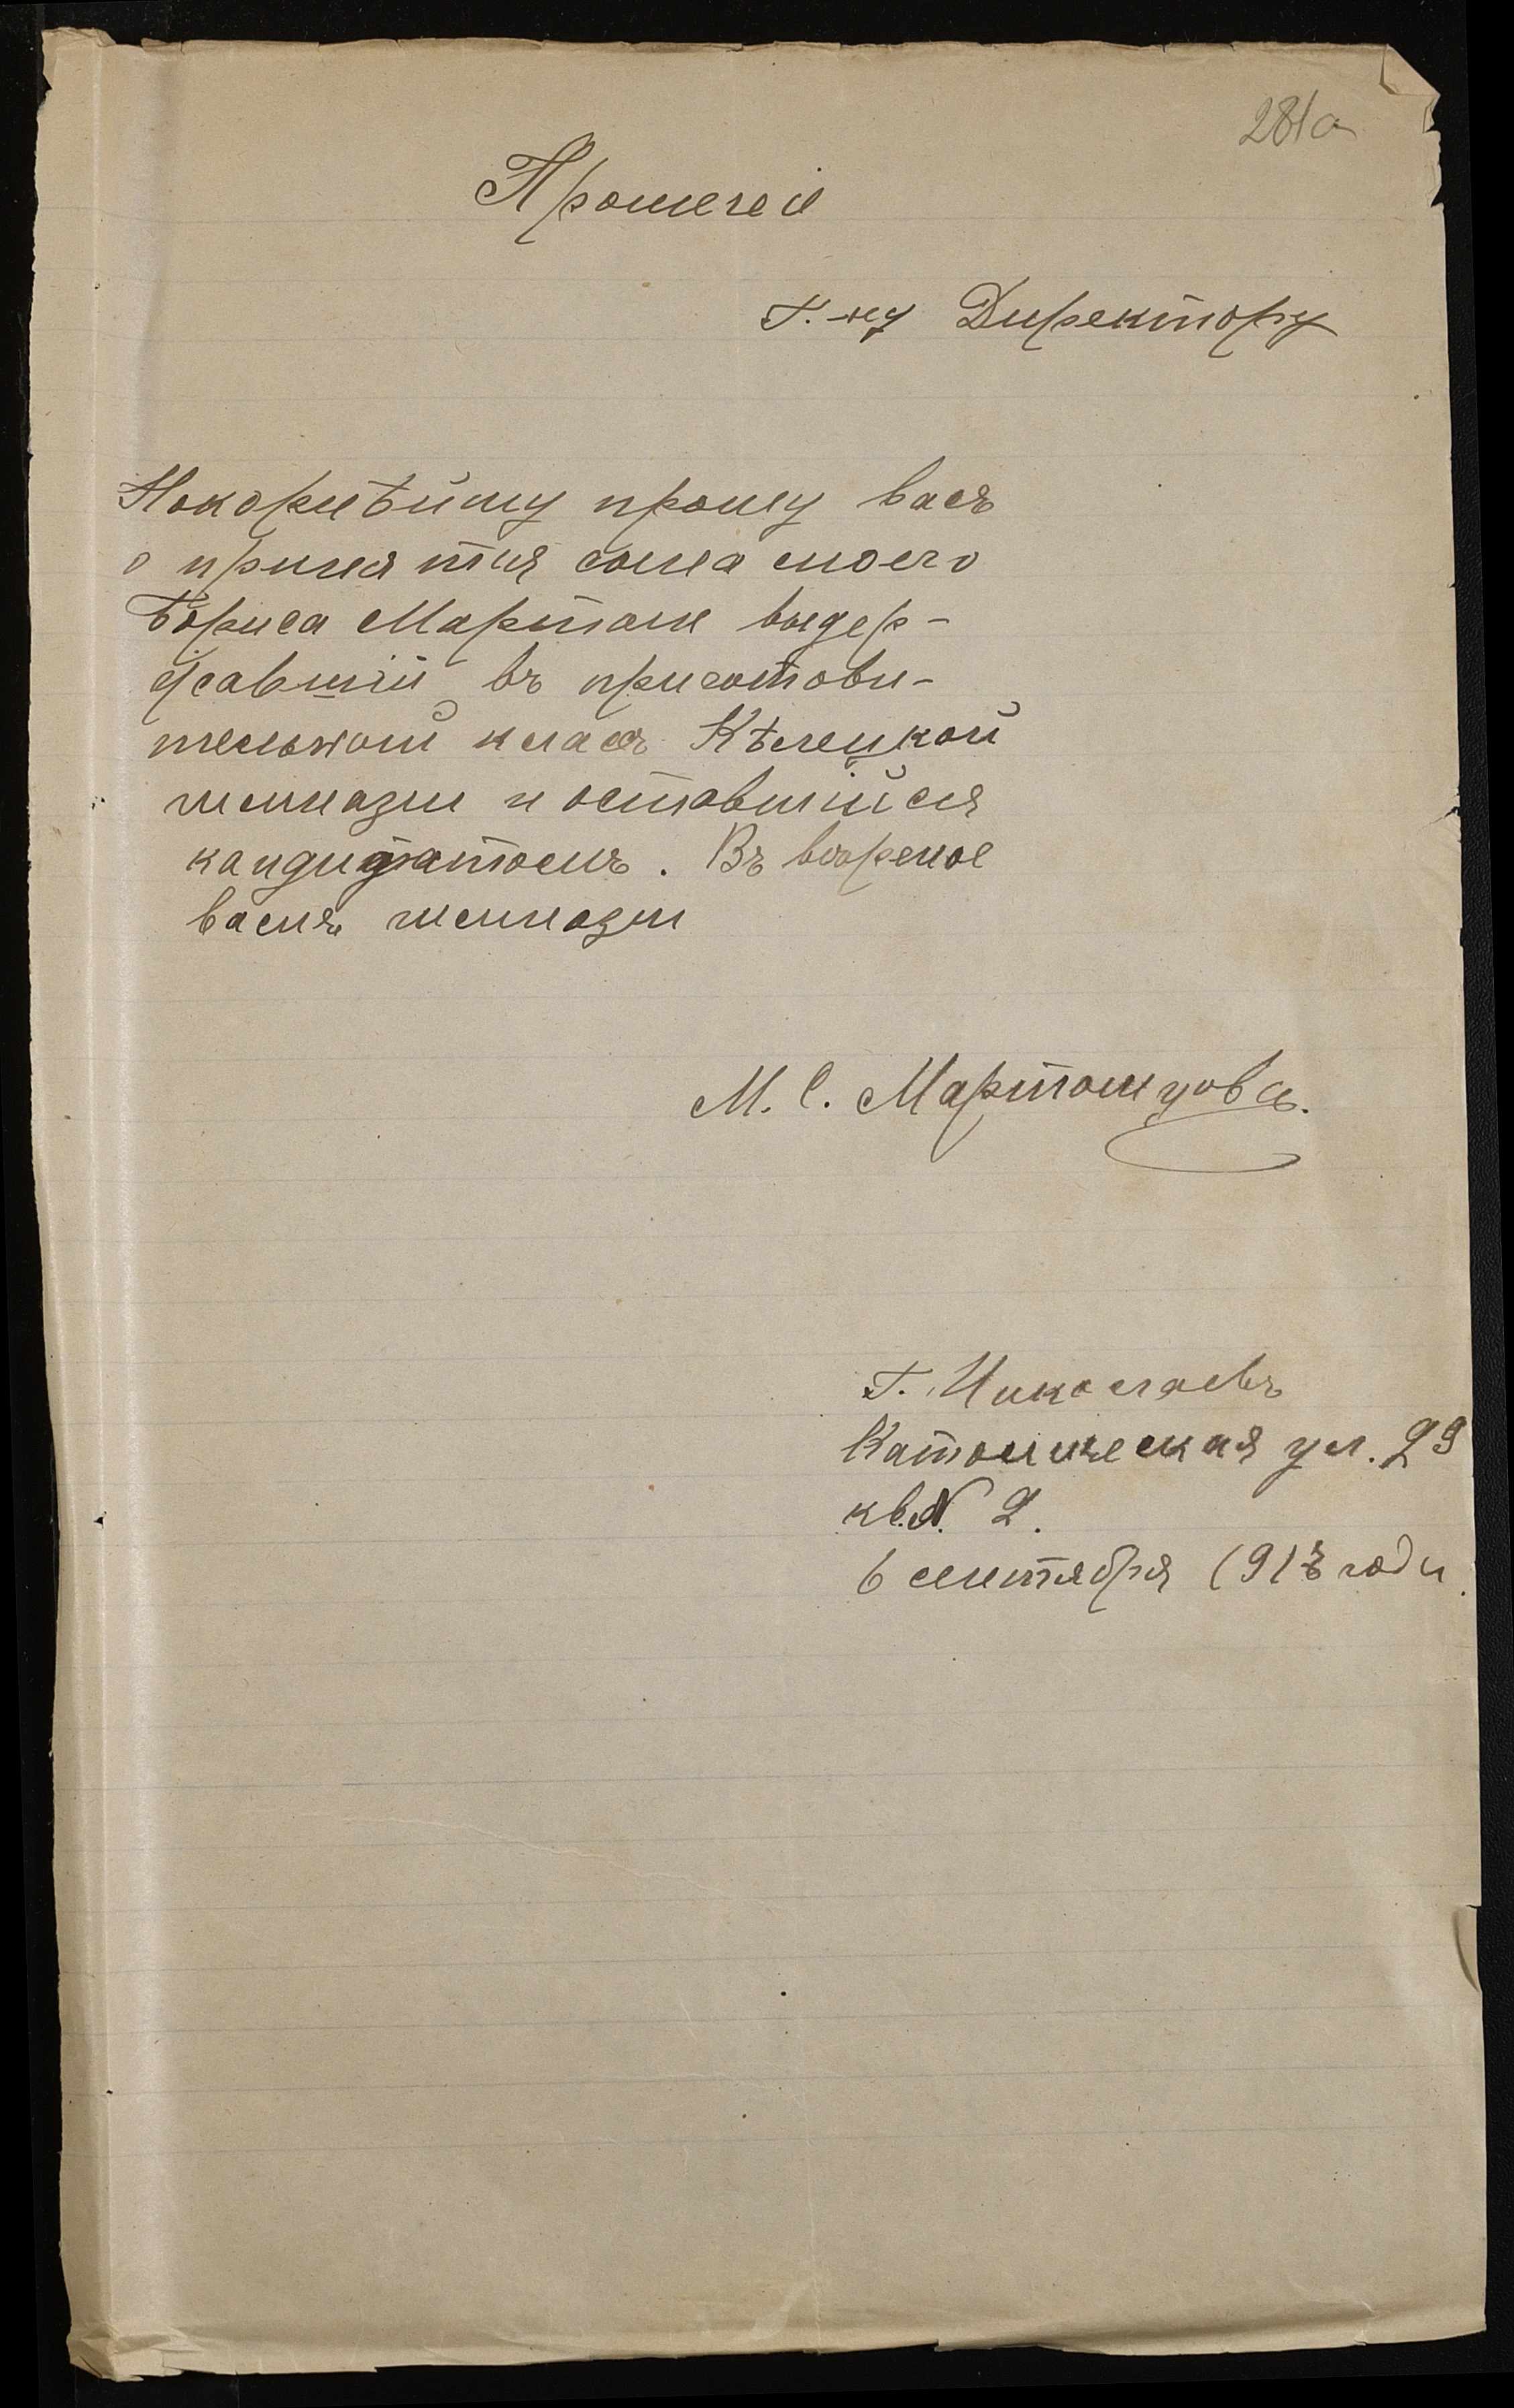 281а
Прошеніе
Г-ну Директору
Покорнѣйшу прошу васъ
о принятия сына моего
Бориса Мартош выдер-
жавшій въ приготови-
тельной класъ Кѣлецкой
гемназіи и оставшійся
кандидатомъ. Въ
гемназіи
М. С. Мартошуовъ.
Г. Николаевъ
Католическая ул. 29
кв. N. 2.
6 сентября 1913 года.